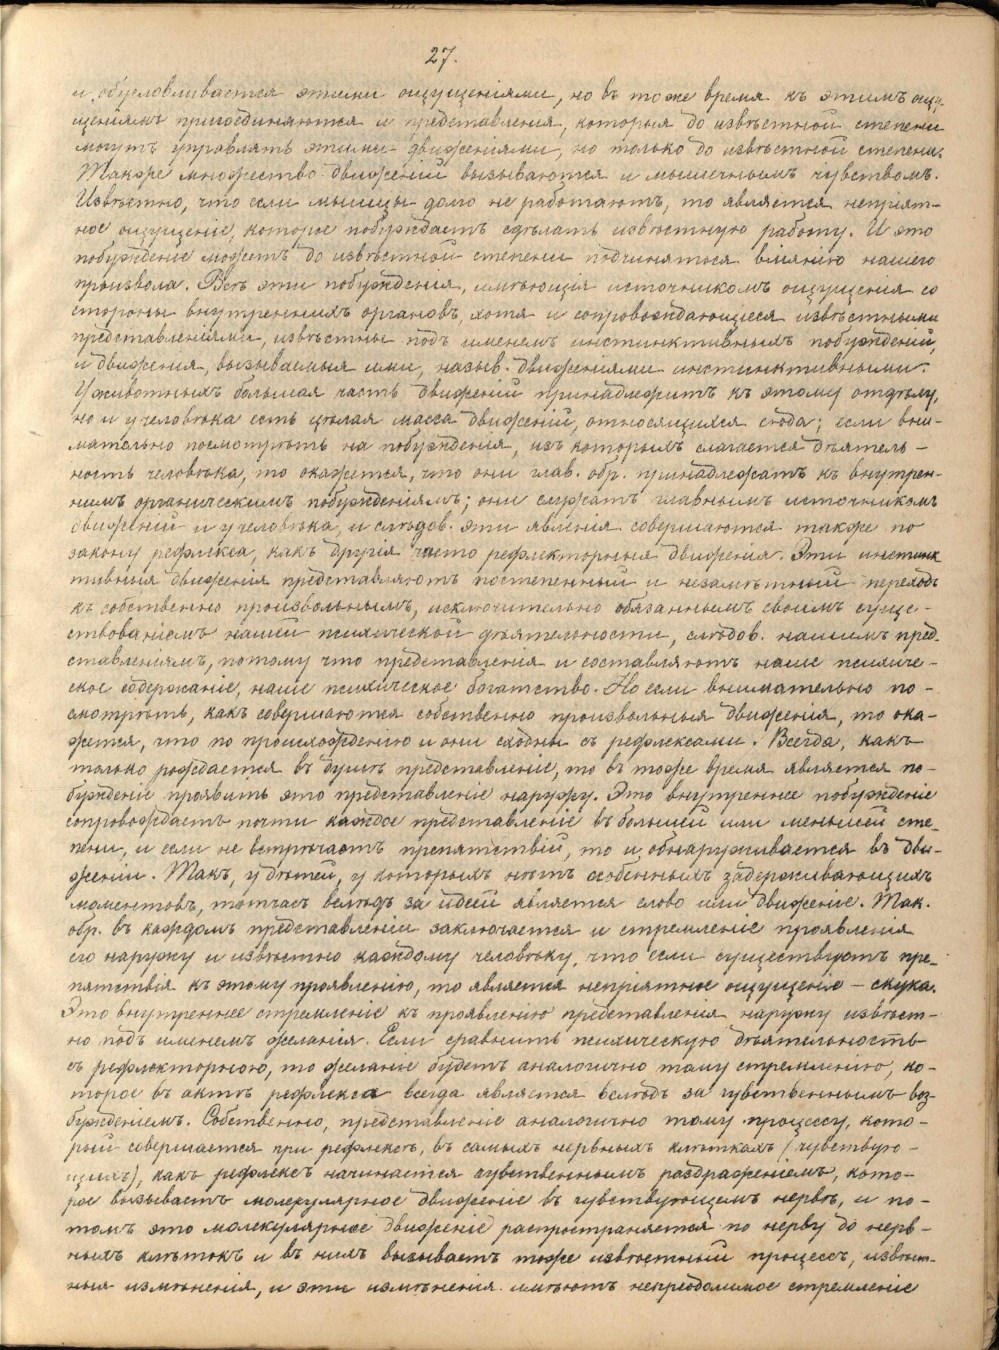 27.
и обусловливается этими ощущеніями, но въ тоже время къ этимъ ощу-
щеніямъ присоединяются и представленія, которыя до извѣстной степени
могутъ управлять этими движеніями, но только до извѣстной степени.
Также множество движеній вызываются и мышечнымъ чувствомъ.
Извѣстно, что если мышцы долго не работаютъ, то является непріят-
ное ощущеніе, которое побуждаетъ сдѣлать извѣстную работу. И это
побужденіе можетъ до извѣстной степени подчиняться вліянію нашего
произвола. Всѣ эти побужденія, имѣющія источникомъ ощущенія со
стороны внутреннихъ органовъ, хотя и сопровождающіеся извѣстными
представленіями, извѣстны подъ именемъ инстинктивныхъ побужденій,
и движенія, вызываемыя ими, назыв. движеніями инстинктивными.
У животныхъ большая часть движеній принадлежитъ къ этому отдѣлу,
но и у человѣка есть цѣлая масса движеній, относящихся сюда; если вни-
мательно посмотрѣть на побужденія, изъ которыхъ слагается дѣятель-
ность человѣка, то окажется, что они глав. обр. принадлежатъ къ внутрен-
нимъ органическимъ побужденіямъ; они служатъ главнымъ источникомъ
движеній и у человѣка, и слѣдов. эти явленія совершаются также по
закону рефлекса, какъ другія чисто рефлекторныя движенія. Эти инстинк
тивныя движенія представляютъ постепенный и незамѣтный переходъ
къ собственно произвольнымъ, исключительно обязаннымъ своимъ суще-
ствованіемъ нашей психической дѣятельности, слѣдов. нашимъ пред-
ставленіямъ, потому что представленія и составляютъ наше психиче-
ское содержаніе, наше психическое богатство. Но если внимательно по-
смотрѣть, какъ совершаются собственно произвольныя движенія, то ока-
жется, что по происхожденію и они сходны съ рефлексами. Всегда, какъ
только рождается въ душѣ представленіе, то въ тоже время является по-
бужденіе проявить это представленіе наружу. Это внутреннее побужденіе
сопровождаетъ почти каждое представленіе въ большей или меньшей сте-
пени, и если не встрѣчаетъ препятствій, то и обнаруживается въ дви-
женіи. Такъ, у дѣтей, у которыхъ нѣтъ особенныхъ задерживающихъ
моментовъ, тотчасъ вслѣдъ за идеей является слово или движеніе. Так.
обр. въ каждомъ представленіи заключается и стремленіе проявленія
его наружу и извѣстно каждому человѣку, что если существуютъ пре-
пятствія къ этому проявленію, то является непріятное ощущеніе – скука.
Это внутреннее стремленіе къ проявленію представленія наружу извѣст-
но подъ именемъ желанія. Если сравнить психическую дѣятельность
съ рефлекторною, то желаніе будетъ аналогично тому стремленію, ко-
торое въ актѣ рефлекса всегда является вслѣдъ за чувственнымъ воз-
бужденіемъ. Собственно, представленіе аналогично тому процессу, кото-
рый совершается при рефлексѣ, въ самыхъ нервныхъ клѣткахъ (чувствую-
щихъ), какъ рефлексъ начинается чувственнымъ раздраженіемъ, кото-
рое вызываетъ молекулярное движеніе въ чувствующемъ нервѣ, и по-
томъ это молекулярное движеніе распространяется по нерву до нерв-
ныхъ клѣтокъ и въ нихъ вызываетъ тоже извѣстный процессъ, извѣст-
ныя измѣненія, и эти измѣненія имѣютъ непреодолимое стремленіе